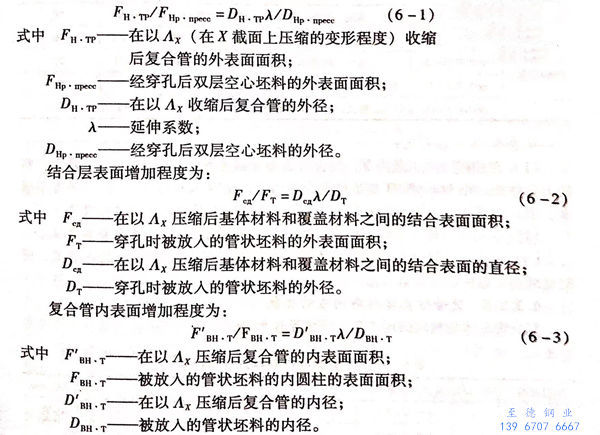 F_Н.ТР/F_Нр.пресс=D_Н.ТРλ/D_Нр.пресс (6-1)
式中 F_Н.ТР——在以Λ_X(在X截面上压缩的变形程度)收缩
后复合管的外表面面积;
F_Нр.пресс——经穿孔后双层空心坯料的外表面面积;
D_Н.ТР——在以Λ_X收缩后复合管的外径;
λ——延伸系数;
D_Нр.пресс——经穿孔后双层空心坯料的外径。
结合层表面增加程度为:
F_сд/F_Т=D_сдλ/D_Т (6-2)
式中 F_сд——在以Λ_X压缩后基体材料和覆盖材料之间的结合表面面积;
F_Т——穿孔时被放入的管状坯料的外表面面积;
D_сд——在以Λ_X压缩后基体材料和覆盖材料之间的结合表面的直径;
D_Т——穿孔时被放入的管状坯料的外径。
复合管内表面增加程度为:
F′_ВН.Т/F_ВН.Т=D′_ВН.Тλ/D_ВН.Т (6-3)
式中 F′_ВН.Т——在以Λ_X压缩后复合管的内表面面积;
F_ВН.Т——被放入的管状坯料的内圆柱的表面面积;
D′_ВН.Т——在以Λ_X压缩后复合管的内径;
D_ВН.Т——被放入的管状坯料的内径。
至德钢业
139 6707 6667